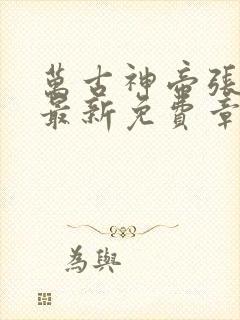 萬古神帝張
最新免費章
為與